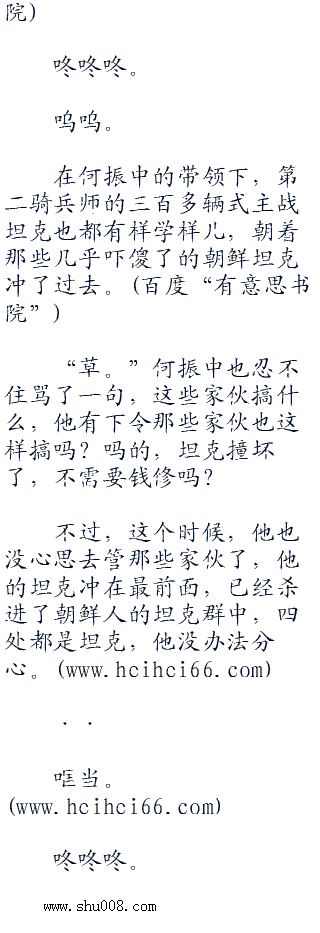 院)
咚咚咚。
呜呜。
在何振中的带领下，第
二骑兵师的三百多辆式主战
坦克也都有样学样儿，朝着
那些几乎吓傻了的朝鲜坦克
冲了过去。(百度“有意思书
院”)
“草。”何振中也忍不
住骂了一句，这些家伙搞什
么，他有下令那些家伙也这
样搞吗？吗的，坦克撞坏
了，不需要钱修吗？
不过，这个时候，他也
没心思去管那些家伙了，他
的坦克冲在最前面，已经杀
进了朝鲜人的坦克群中，四
处都是坦克，他没办法分
心。(www.hcihci66.com)
. .
哐当。
(www.hcihci66.com)
咚咚咚。
www.shu008.com